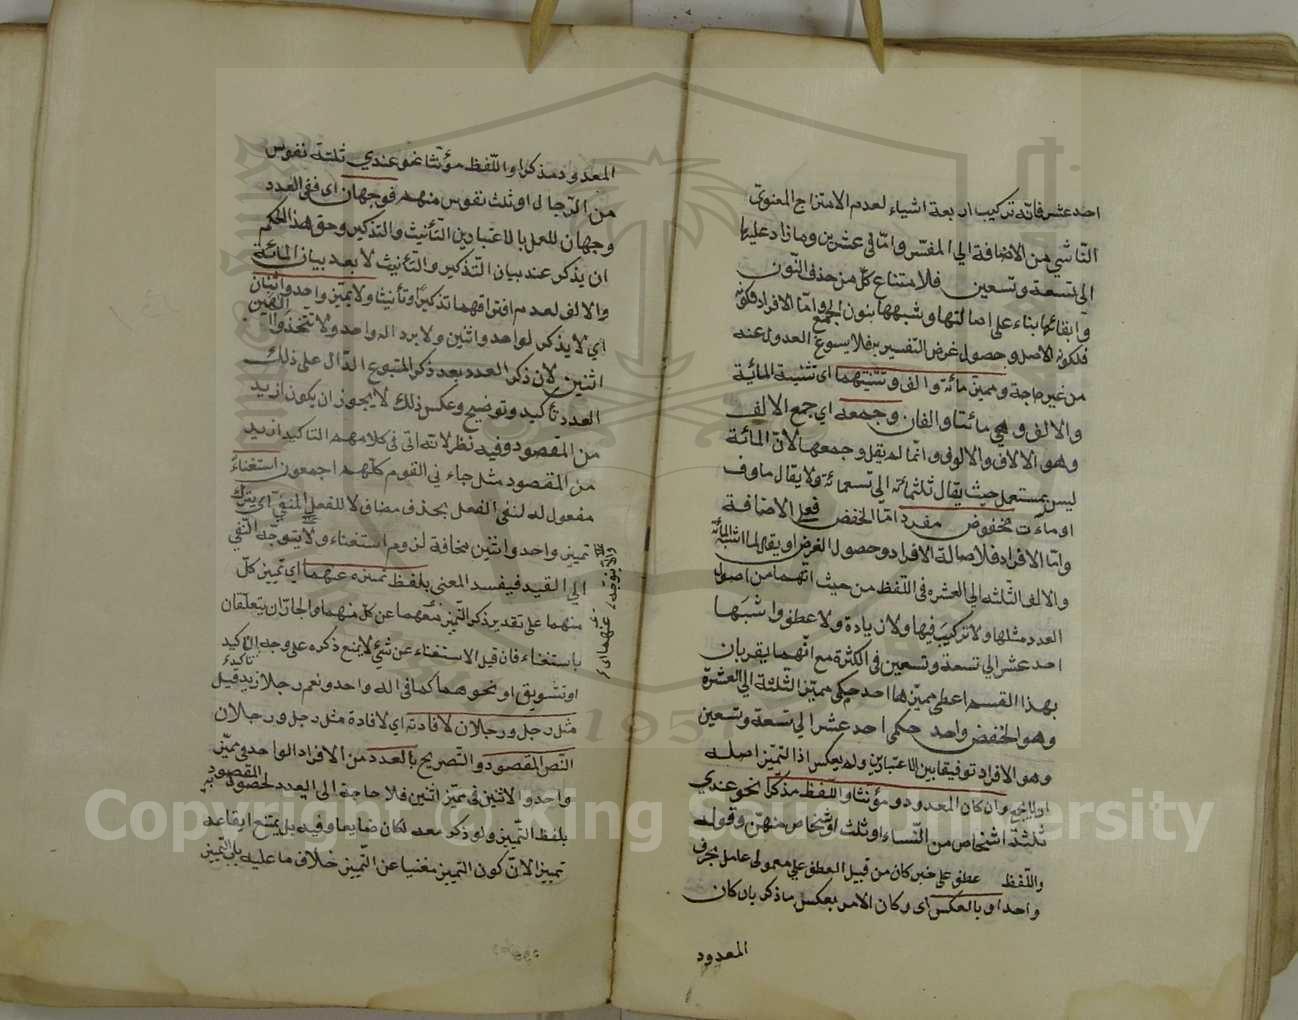 احد عشر فانه تركيب اربعة اشياء لعدم الامتزاج المعنوي
الناشي من الاضافة الي المفسر واما في عشرين وما زاد عليها
الي تسعة وتسعين فلامتناع كل من حذف النون
وابقائها بناء على اصالتها وشبهها بنون الجمع واما الافراد فلكونه
فلكونه الاصل وحصول غرض التفسير به فلا يسوغ العدول عنه
من غير حاجة ومميز مائة والف وتثنيتهما اي تثنية المائة
والالف وهي مائتا والفان وجمعه اي جمع الالف
وهو الالاف والالوف وانما لم يقل وجمعها لان المائة
ليس بمستعمل حيث يقال ثلثمائة الي تسعمائة ولا يقال
او مآت مخفوض مفرد اما الخفض فعلى الاضافة
واما الافراد فلاصالة الافراد وحصول الغرض او يقال لما اشبه المائة
والالف الثلثة الي العشرة في اللفظ من حيث انهما من اصول
العدد مثلها ولا تركيب فيها ولا زيادة ولا عطف واشبها
احد عشر الي تسعة وتسعين في الكثرة مع انهما يقربان
بهذا القسم اعطى مميزها احد حكمي مميز الثلثة الي العشرة
وهو الخفض واحد حكمي احد عشر الي تسعة وتسعين
وهو الافراد توفيقا بين الاعتبارين ولم يعكس اذ التمييز اصله
وان كان المعدود مؤنثا واللفظ مذكرا نحو عندي
ثلثة اشخاص من النساء او ثلث اشخاص منهن وقوله
واللفظ عطف على خبر كان من قبيل العطف علي معمولي عامل بحرف
واحد او بالعكس اي وكان الامر بعكس ما ذكر بان كان
المعدود
المعدود مذكرا واللفظ مؤنثا نحو عندي ثلثة نفوس
من الرجال او ثلث نفوس منهم فوجهان اي ففي العدد
وجهان للعمل بالاعتبارين التأنيث والتذكير وحق هذا الحكم
ان يذكر عند بيان التذكير والتأنيث لا بعد بيان المائة
والالف لعدم افتراقهما تذكيرا وتأنيثا ولا يميز واحد واثنان
اي لا يذكر لواحد واثنين ولا يرد اله واحد ولا تتخذوا الهين
اثنين لان ذكر العدد بعد ذكر المتبوع الدال على ذلك
العدد تأكيد وتوضيح وعكس ذلك لا يجوز ان يكون ازيد
من المقصود وفيه نظر لانه اتى في كلامهم التاكيد ازيد
من المقصود مثل جاءني القوم كلهم اجمعون استغناء
مفعول له لنفي الفعل بحذف مضاف لا للفعل المنفي اي يترك
تمييز واحد واثنين مخافة لزوم استغناء ولا يتوجه النفي
الي القيد فيفسد المعنى بلفظ تمييزه عنهما اي تمييز كل
منهما على تقدير ذكر التمييز معهما عن كل منهما والجاران يتعلقان
باستغناء فان قيل الاستغناء عن شئ لا يمنع ذكره على وجه التاكيد
او تشويق او نحوهما كما في اله واحد ونعم رجلا زيد قيل
مثل رجل ورجلان لافادته اي لافادة مثل رجل ورجلان
النص المقصود والتصريح بالعدد من الافراد لواحد ومميز
واحد والاثنين في مميز اثنين فلا حاجة الى العدد لحصول المقصود
بلفظ التمييز ولو ذكر معه لكان ضايعا وفيه بل يمتنع ايقاعه
تمييزا لان كون التمييز مغنيا عن التمييز خلاف ما عليه باب التمييز
Copyright © King Saud University
1957